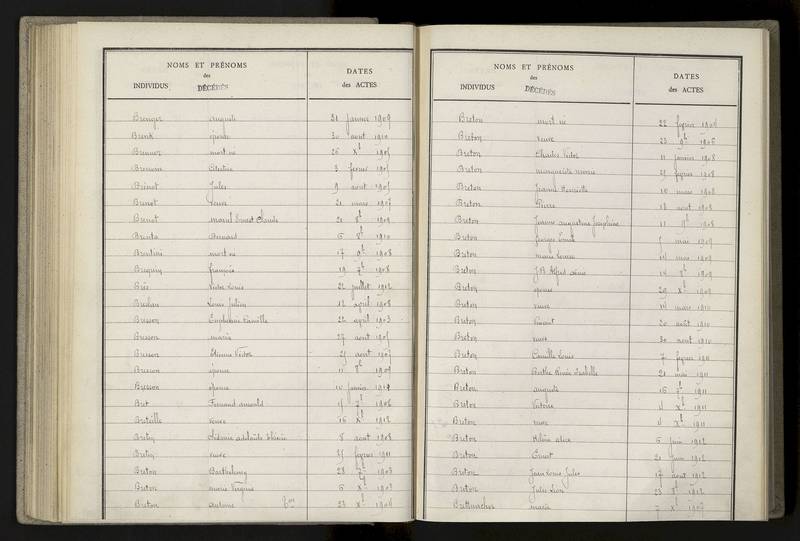 NOMS ET PRÉNOMS
des
INDIVIDUS DÉCÉDÉS
DATES
des ACTES
Brenger auguste 21 janvier 1909
Brenk épouse 30 aout 1910
Brenner mort né 26 Xb
3 fevrier
Brénot Jules 9 aout
Brenot 21 mars 1907
Brenot Ernest Claude 21 8b 1909
Brenta Bernard 6 8b 1910
Brentini mort né 17 9b 1908
Brequin françois 19 7b 1908
Brés Victor Louis 22 juillet 1912
Breslan Louis Julien 12 april 1908
Bresson Euphémie Camille 22 april 1903
Bresson maria 27 aout
Bresson Etienne Victor aout
Bresson épouse 11 8b
Bresson épouse 10 janvier
Bret Fernand 7b 1906
Breteille veuve 16 Xb 1912
Bretin adelaide 8 aout 1908
Bretin veuve fevrier 1911
Breton Barthelemy 28 7b 1903
Breton marie Virginie 6 Xb 1903
Breton antoine 23 Xb
NOMS ET PRÉNOMS
des
INDIVIDUS DÉCÉDÉS
DATES
des ACTES
Breton mort né 22 fevrier
Breton veuve 23 9b 1906
Breton Charles Victor 11 janvier 1908
Breton marguerite marie fevrier 1908
Breton Jeanne Henriette 10 mars 1908
Breton Pierre 18 aout 1908
Breton Jeanne augustine Joséphine 11 9b 1908
Breton Georges Emile mai 1909
Breton marie Louise 14 mars 1909
Breton J.B. Alfred 14 8b 1909
Breton épouse 29 Xb 1909
Breton veuve 14 mars 1910
Breton Vincent 20 août 1910
Breton veuve 30 aout 1910
Breton Camille Louis 7 fevrier 1911
Breton Berthe Renée Isabelle 21 mai 1911
Breton auguste 16 8b 1911
Breton Victoire 4 Xb 1911
Breton veuve Xb 1911
Breton Hélène alice 6 juin 1912
Breton Ernest 21 juin 1912
Breton Jean Louis Jules 17 aout 1912
Breton Jules Léon 23 8b 1912
Brettmacher maria 7 Xb